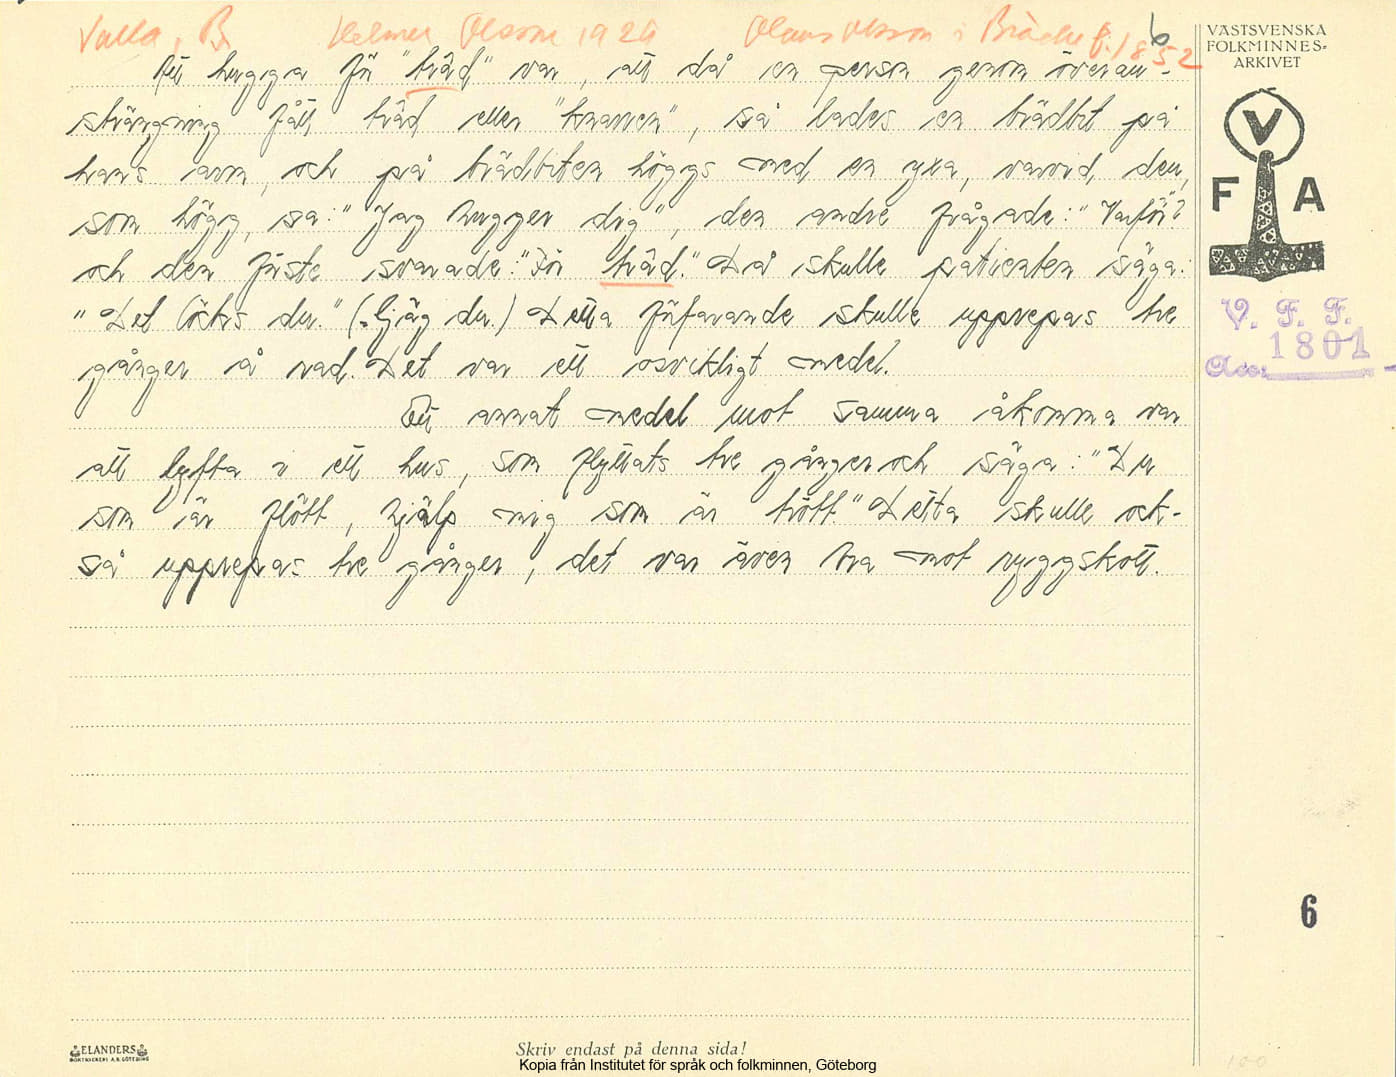 Valla, B. Helmer Olsson 1929 Olaus Olsson i Bräcke f. 1852
6
Att hugga för "träd" var, att då en person genom överan-
strängning fått träd eller "knarren", så lades en brädbit på
hans arm, och på brädbiten höggs med en yxa, varvid, den,
som högg, sa: "Jag hugger dig", den andre frågade: "Varför"?
och den förste svarade: "För träd." Då skulle patienten säga:
"Det löcks du." ( ljög du.) Detta förfarande skulle upprepas tre
gånger å rad. Det var ett osvikligt medel.
Ett annat medel mot samma åkomma var
att lyfta i ett hus, som flyttats tre gånger och säga: "Du
som är flött, hjälp mig som är trött." Detta skulle ock-
så upprepas tre gånger, det var även bra mot ryggskott.
VÄSTSVENSKA
FOLKMINNES-
ARKIVET
V
F A
V. F. F.
1801
Acc:
6
100
ELANDERS
BOKTRYCKERI A.B. GÖTEBORG
Skriv endast på denna sida!
Kopia från Institutet för språk och folkminnen, Göteborg